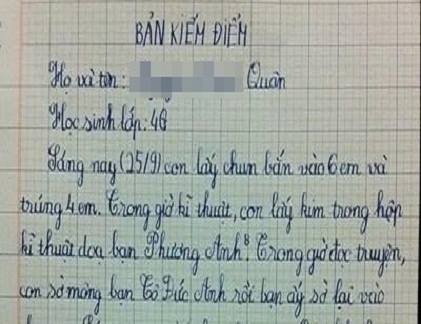 BẢN KIỂM ĐIỂM
Họ và tên: Quân
Học sinh lớp: 4G
Sáng nay (25/9) con lấy chun bắn vào 6 em và
trúng 4 em. Trong giờ kĩ thuật, con lấy kim trong hộp
kĩ thuật doạ bạn Phương Anh. Trong giờ đọc truyện,
con sờ mông bạn Tô Đức Anh rồi bạn ấy sờ lại vào